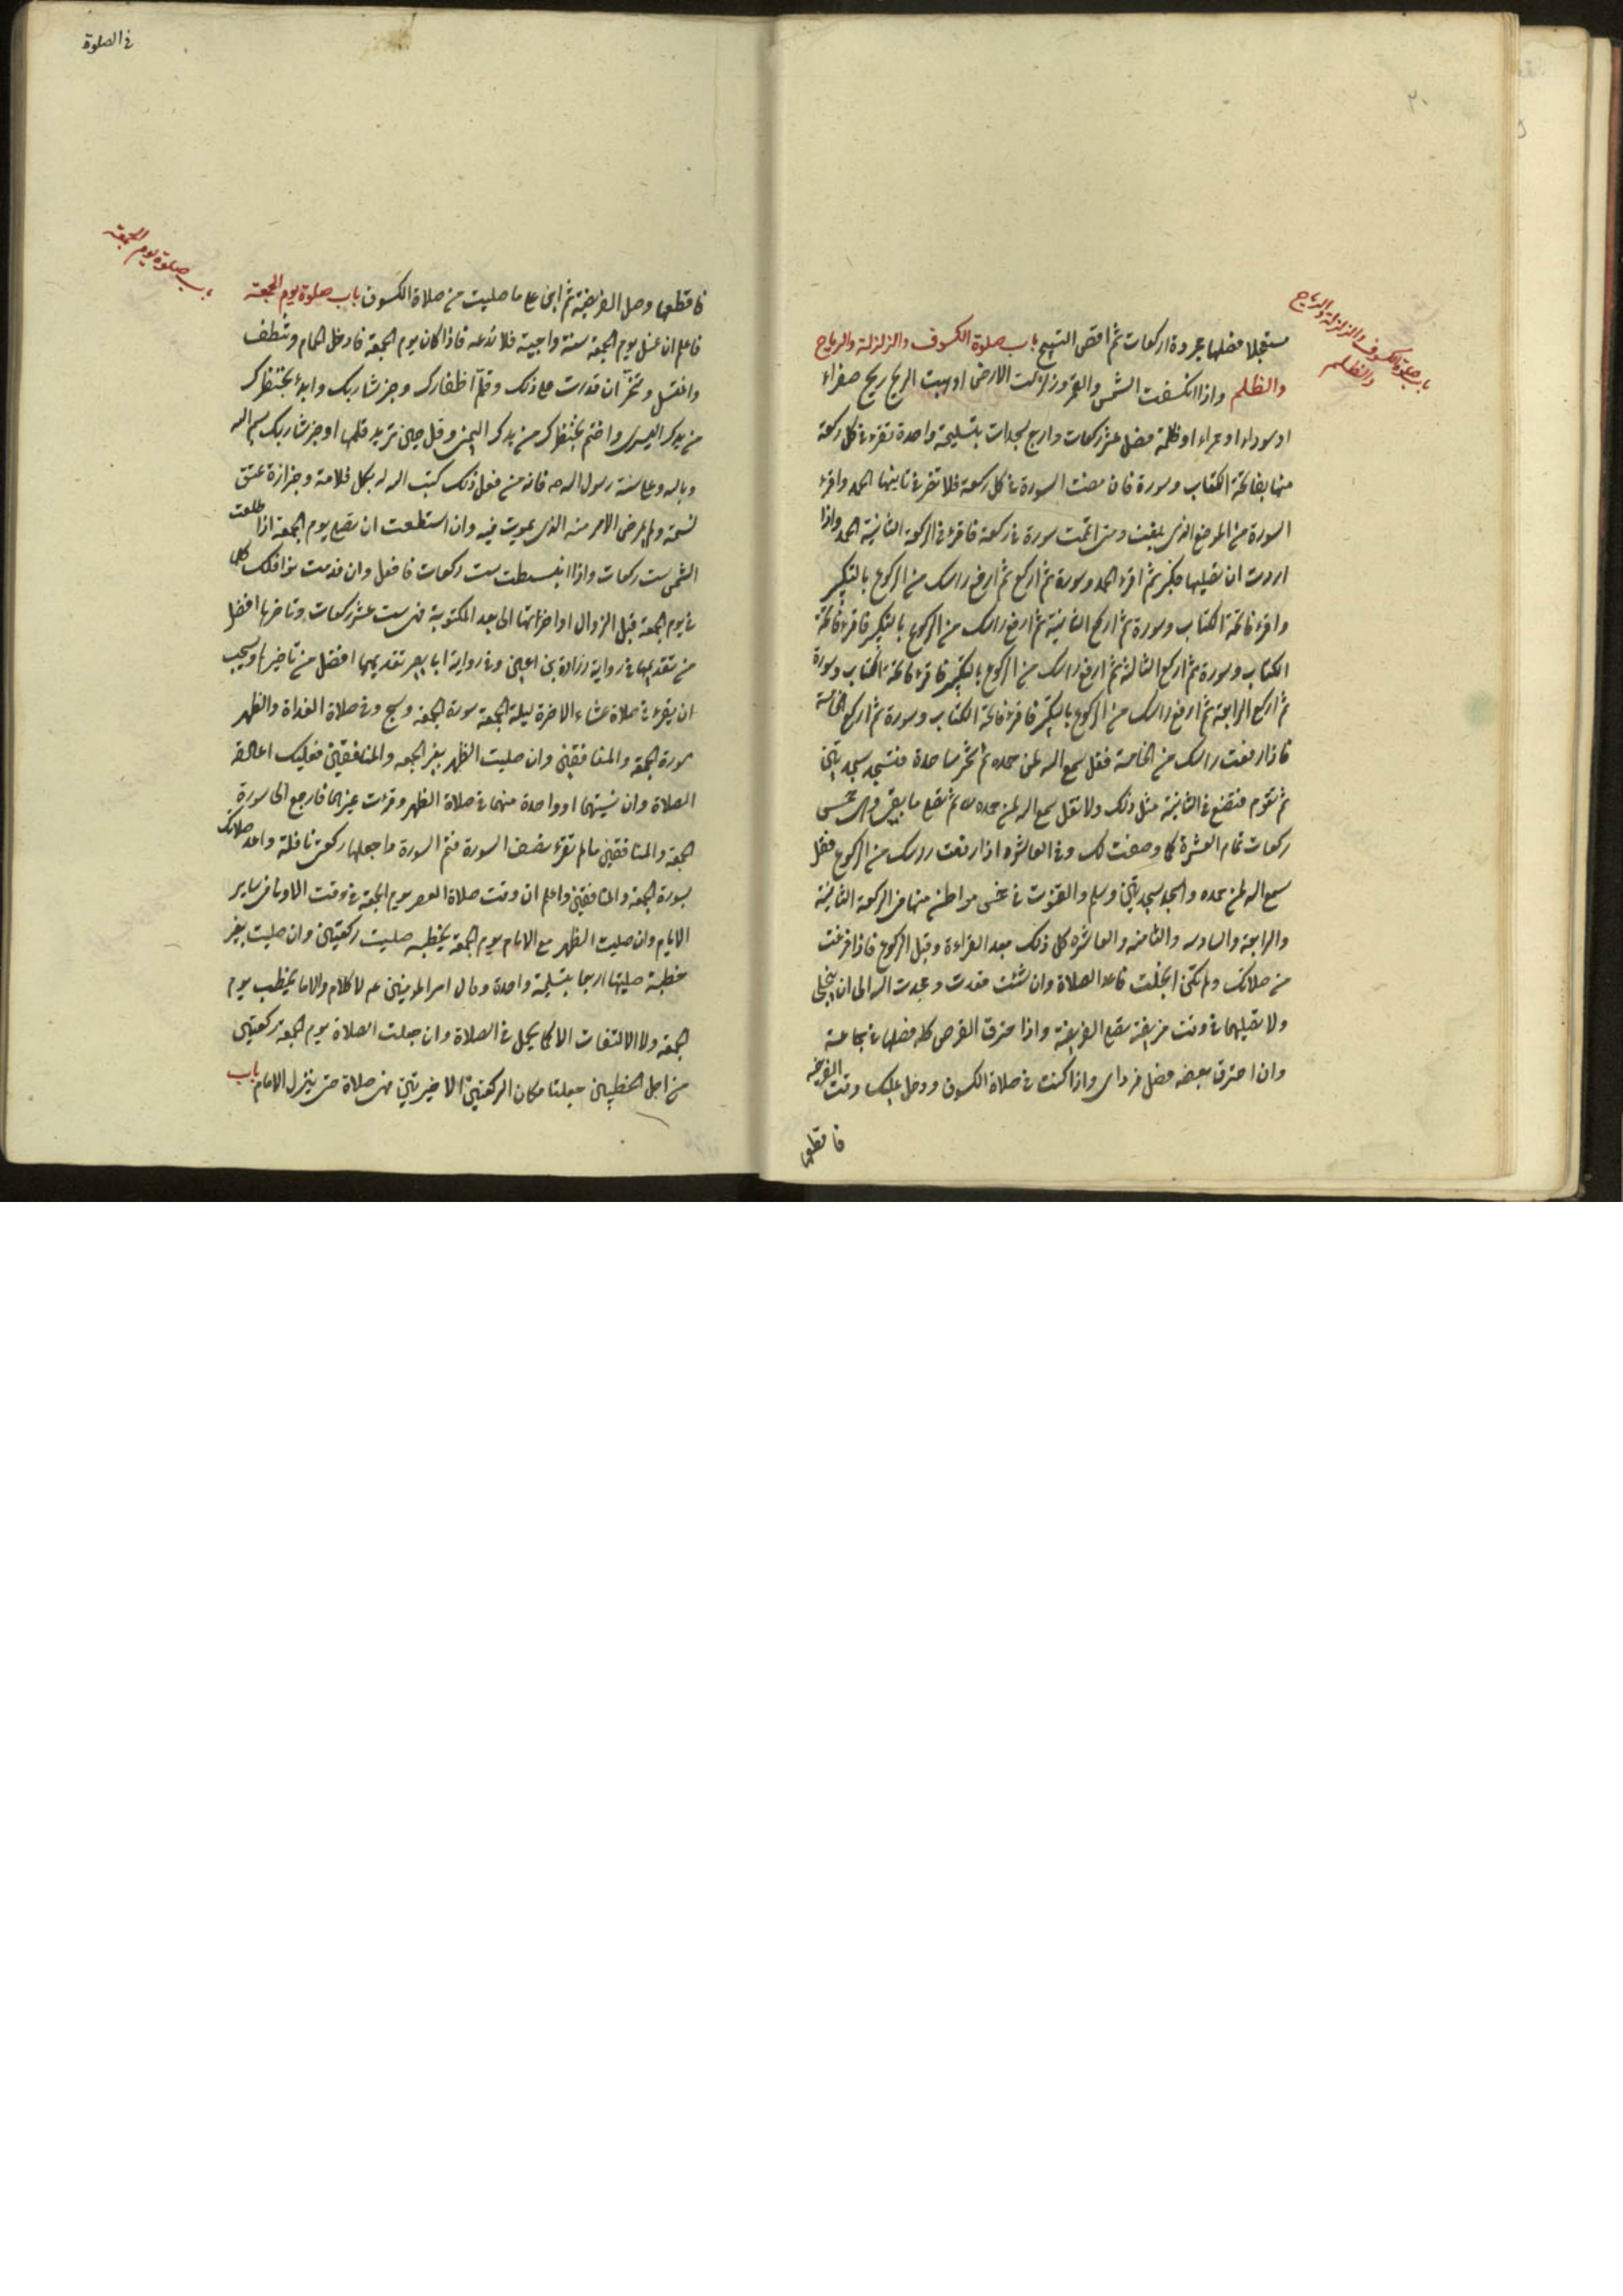 ٢٠
باب صلوة الكسوف والزلزلة والرياح
والظلم
مستعجلا فصلها مجردة اركعات ثم اقض التسبيح باب صلوة الكسوف والزلزلة والرياح
والظلم واذا انكسفت الشمس والقمر وزلزلت الارض او هبت الريح ريح صفراء
او سوداء او حمراء او ظلمة فصل عشر ركعات واربع سجدات بتسليمة واحدة تقرء في كل ركعة
منها بفاتحة الكتاب وسورة فان بعضت السورة في كل ركعة فلا تقرء في ثانيتها الحمد واقرء
السورة من الموضع الذي بلغت ومتى اتممت سورة في ركعة فاقرء في الركعة الثانية الحمد واذا
اردت ان تصليها فكبر ثم اقرء الحمد وسورة ثم اركع ثم ارفع راسك من الركوع بالتكبير
واقرء فاتحة الكتاب وسورة ثم اركع الثانية ثم ارفع راسك من الركوع بالتكبير فاقرء فاتحة
الكتاب وسورة ثم اركع الثالثة ثم ارفع راسك من الركوع بالتكبير فاقرء فاتحة الكتاب وسورة
ثم اركع الرابعة ثم ارفع راسك من الركوع بالتكبير فاقرء فاتحة الكتاب وسورة ثم اركع الخامسة
فاذا رفعت راسك من الخامسة فقل سمع الله لمن حمده ثم تخر ساجدا فتسجد سجدتين
ثم تقوم فتصنع في الثانية مثل ذلك ولا تقل سمع الله لمن حمده ثم تصلي ما بقي وهي خمس
ركعات تمام العشرة كما وصفت لك وفي العاشرة اذا رفعت راسك من الركوع فقل
سمع الله لمن حمده واسجد سجدتين وسلم والقنوت في خمس مواطن منها في الركعة الثانية
والرابعة والسادسه والثامنه والعاشره كل ذلك بعد القراءة وقبل الركوع فاذا فرغت
من صلاتك ولم تكن انجلت فاعد الصلاة وان شئت قعدت ومجدت الله الى ان ينجلي
ولا تصليهما في وقت فريضة تصلي الفريضة واذا احترق القرص كله فصلها في جماعة
وان احترق بعضه فصل فرادى واذا كنت في صلاة الكسوف ودخل عليك وقت الفريضة
فاقطعها
في الصلوة
باب صلوة يوم الجمعة
فاقطعها وصل الفريضة ثم ابن على ما صليت من صلاة الكسوف باب صلوة يوم الجمعة
فاعلم ان غسل يوم الجمعة سنة واجبة فلا تدعه فاذا كان يوم الجمعة فادخل الحمام وتنظف
واغتسل وتنخر ان قدرت على ذلك وقلم اظفارك وجز شاربك وابدء بخنصرك
من يدك اليسرى واختم بخنصرك من يدك اليمنى وقل حين تريد قلمها او جز شاربك بسم الله
وبالله وعلى سنة رسول الله ص فانه من فعل ذلك كتب الله له بكل قلامة وجزازة عتق
نسمة ولم يمرض الا مرضه الذي يموت فيه وان استطعت ان تصلي يوم الجمعة اذا طلعت
الشمس ست ركعات واذا انبسطت ست ركعات فافعل وان قدمت نوافلك كلها
في يوم الجمعة قبل الزوال او اخرتها الى بعد المكتوبة فهي ست عشر ركعات وتاخرها افضل
من تقديمها في رواية زرارة بن اعين وفي رواية ابا بصير تقديمها افضل من تاخيرها ويستحب
ان يقرء في صلاة عشاء الاخرة ليلة الجمعة سورة الجمعة وسبح وفي صلاة الغداة والظهر
سورة الجمعة والمنافقين وان صليت الظهر بغير الجمعه والمنافقين فعليك اعادة
الصلاة وان نسيتهما او واحدة منهما في صلاة الظهر وقرءت غيرهما فارجع الى سورة
الجمعة والمنافقين ما لم تقرء نصف السورة فتم السورة واجعلها ركعتي نافلة واعد صلاتك
بسورة الجمعة والمنافقين واعلم ان وقت صلاة العصر يوم الجمعة في وقت الاولى في ساير
الايام وان صليت الظهر مع الامام يوم الجمعة بخطبه صليت ركعتين وان صليت بغير
خطبة صليتها اربعا بتسليمة واحدة وقال امير المومنين عم لا كلام والامام يخطب يوم
الجمعة ولا الالتفات الا كما يحل في الصلاة وان جعلت الصلاة يوم الجمعة ركعتين
من اجل الخطبتين جعلتا مكان الركعتين الاخيرتين فهي صلاة حتى ينزل الامام باب